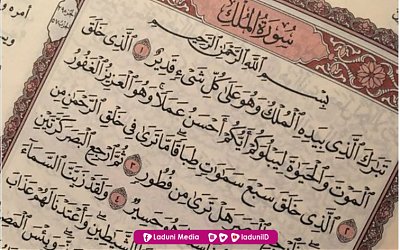 سُورَةُ الْمُلْكِ
بِسْمِ اللَّهِ الرَّحْمَٰنِ الرَّحِيمِ
تَبَٰرَكَ الَّذِي بِيَدِهِ الْمُلْكُ وَهُوَ عَلَىٰ كُلِّ شَيْءٍ قَدِيرٌ ١ الَّذِي خَلَقَ
الْمَوْتَ وَالْحَيَوٰةَ لِيَبْلُوَكُمْ أَيُّكُمْ أَحْسَنُ عَمَلًا وَهُوَ الْعَزِيزُ الْغَفُورُ
٢ الَّذِي خَلَقَ سَبْعَ سَمَٰوَٰتٍ طِبَاقًا مَا تَرَىٰ فِي خَلْقِ الرَّحْمَٰنِ مِن
هَلْ تَرَىٰ مِن فُطُورٍ ٣ ثُمَّ ارْجِعِ الْبَصَرَ كَرَّتَيْنِ
حَسِيرٌ ٤ وَلَقَدْ زَيَّنَّا السَّمَاءَ
لِلشَّيَٰطِينِ وَأَعْتَدْنَا لَهُمْ عَذَابَ
وَبِئْسَ
Laduni Media laduniID